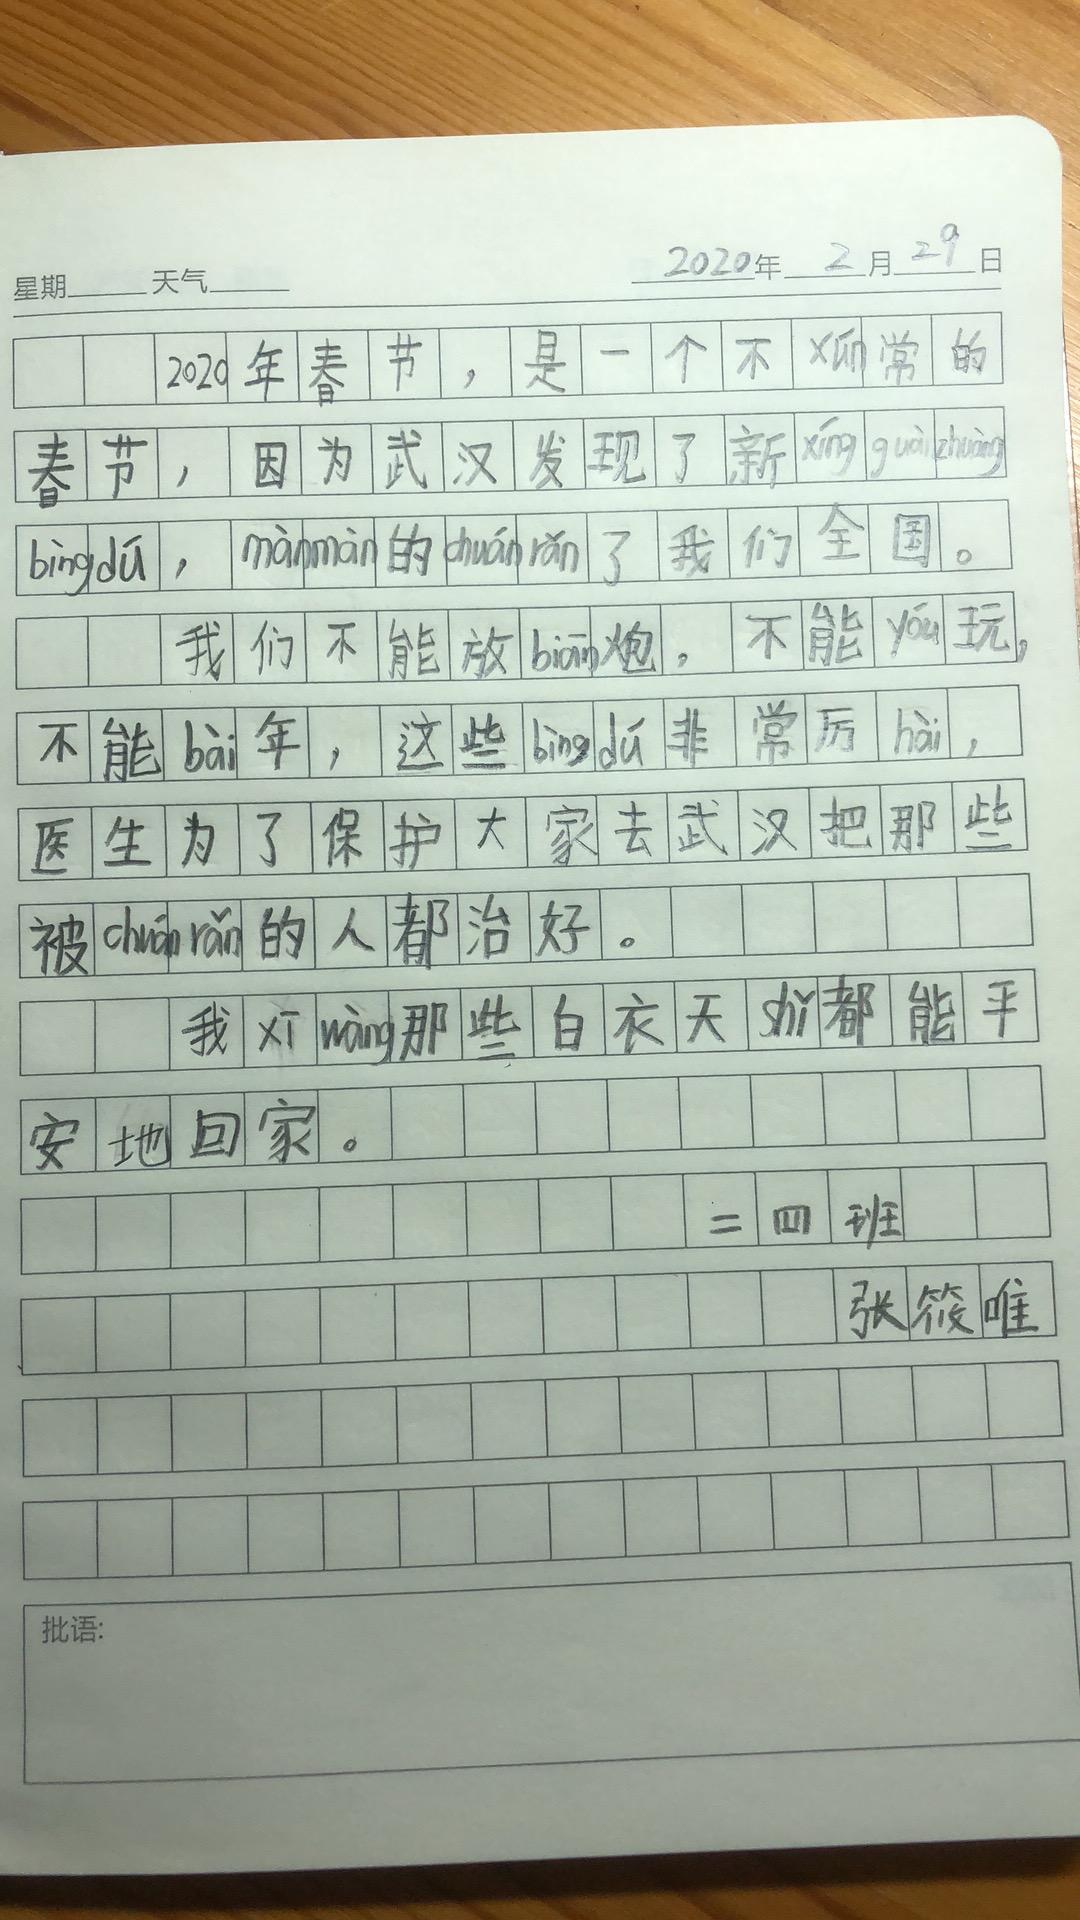 星期____ 天气____ 2020年 2 月 29 日
2020年春节,是一个不xún常的
春节,因为武汉发现了新xíng guàn zhuàng
bìng dú,màn màn的chuán rǎn了我们全国。
我们不能放biān炮,不能yóu玩,
不能bài年,这些bìng dú非常厉hài,
医生为了保护大家去武汉把那些
被chuán rǎn的人都治好。
我xī wàng那些白衣天shǐ都能平
安地回家。
二四班
张筱唯
批语: